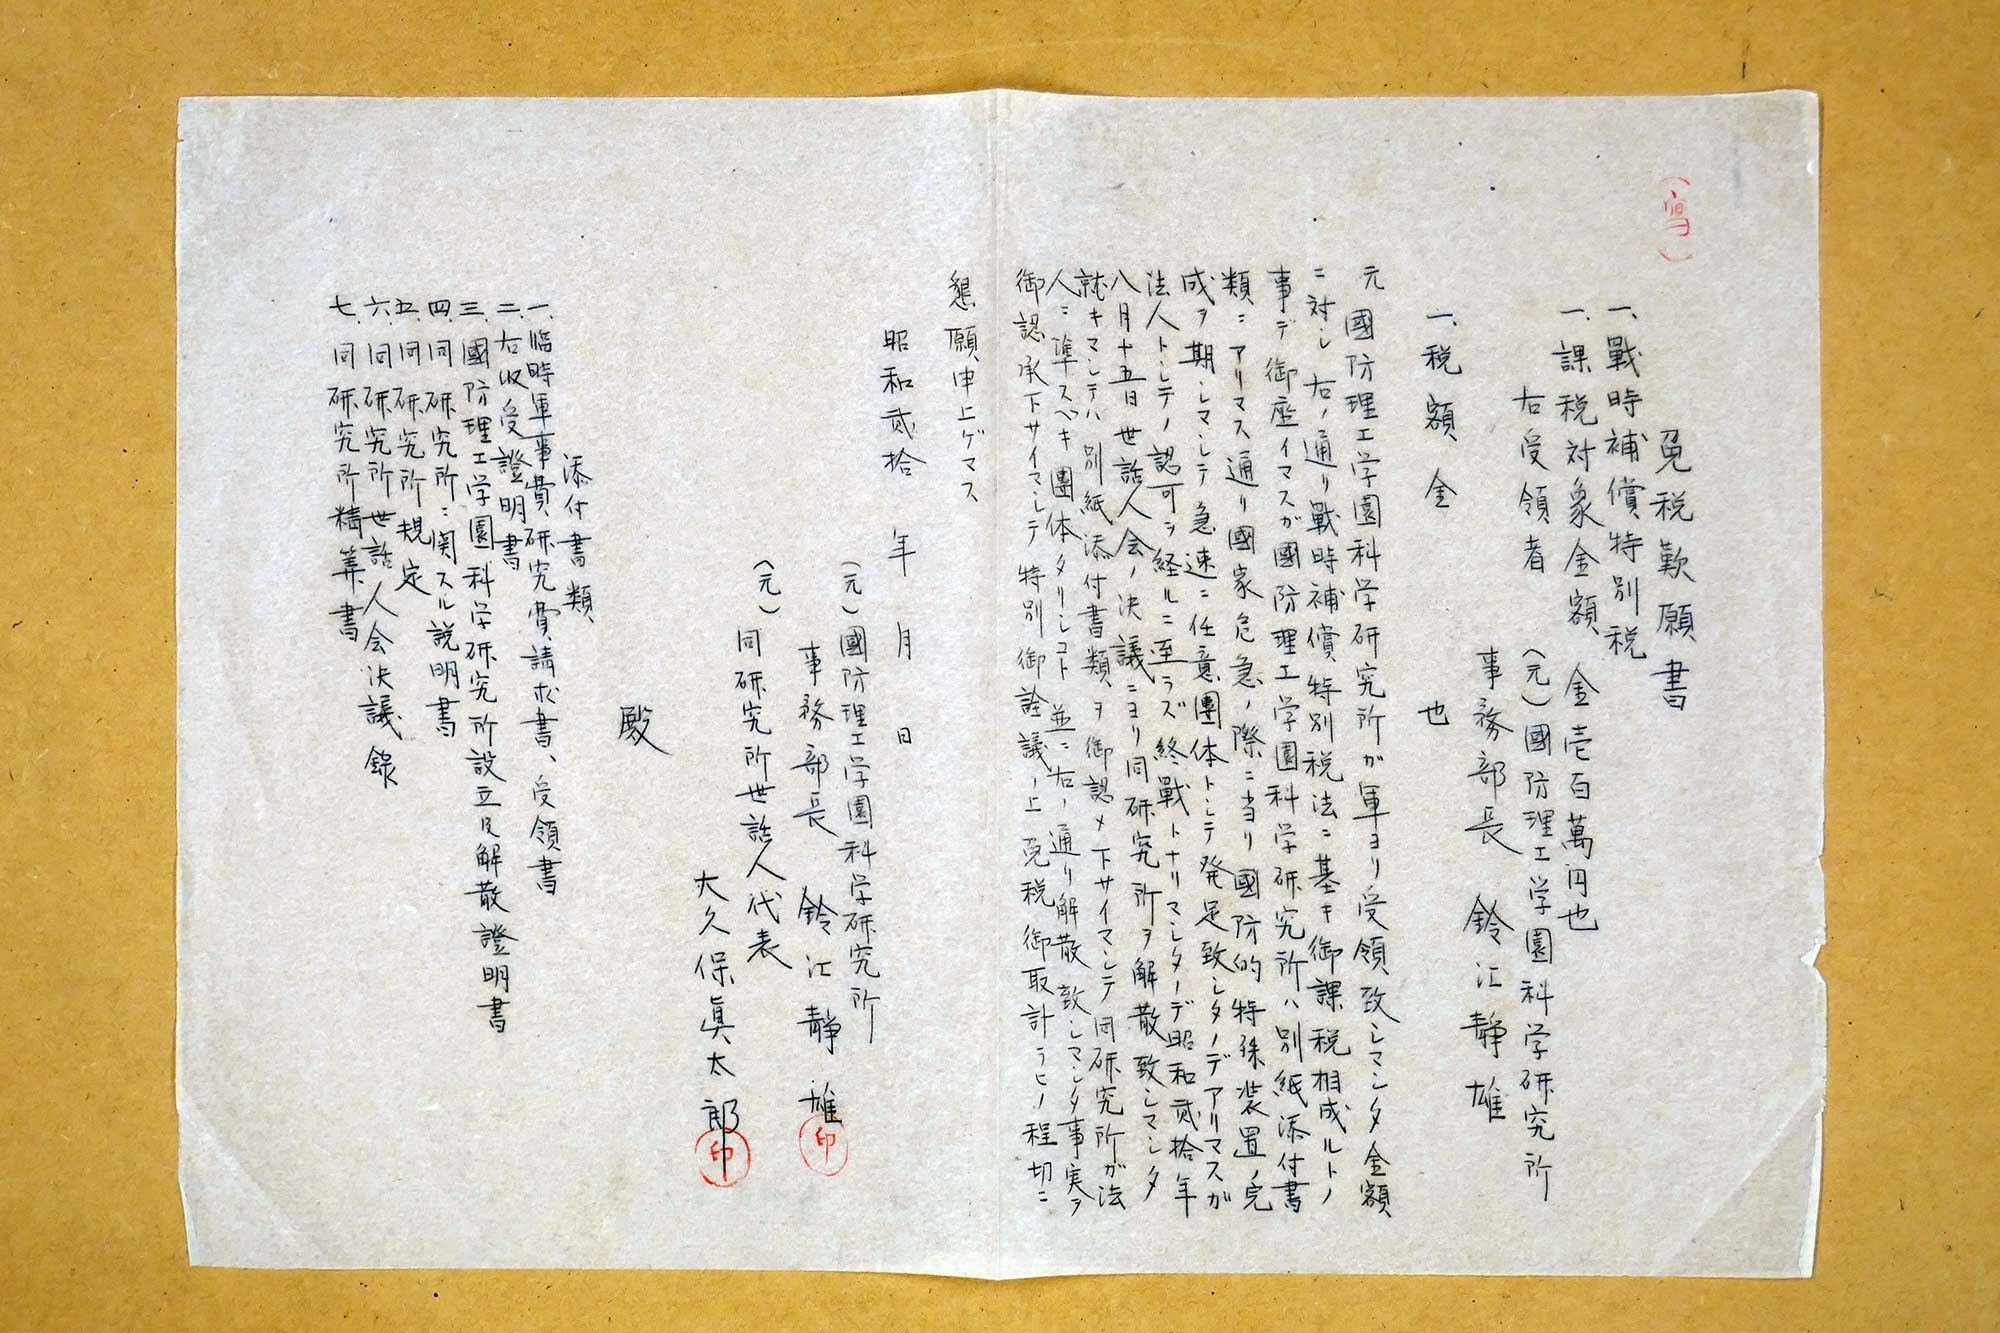 （寫）
免税歎願書
一、戰時補償特別税
一、課税対象金額　金壱百萬円也
右受領者　（元）國防理工学園科学研究所
事務部長　鈴江靜雄
一、税額　金　　　也
元國防理工学園科学研究所ガ軍ヨリ受領致シマシタ金額
ニ対シ右ノ通リ戰時補償特別税法ニ基キ御課税相成ルトノ
事デ御座イマスガ國防理工学園科学研究所ハ別紙添付書
類ニアリマス通リ國家危急ノ際ニ当リ國防的特殊裝置ノ完
成ヲ期シマシテ急速ニ任意團体トシテ発足致シタノデアリマスガ
法人トシテノ認可ヲ経ルニ至ラズ終戰トナリマシタノデ昭和貳拾年
八月十五日世話人会ノ決議ニヨリ同研究所ヲ解散致シマシタ
就キマシテハ別紙添付書類ヲ御認メ下サイマシテ同研究所ガ法
人ニ準スベキ團体タリシコト並ニ右ノ通リ解散致シマシタ事実ヲ
御認承下サイマシテ特別御詮議ノ上免税御取計ラヒノ程切ニ
懇願申上ゲマス
昭和貳拾　年　月　日
（元）國防理工学園科学研究所
事務部長　鈴江靜雄 印
（元）同研究所世話人代表
大久保眞太郎 印
殿
添付書類
一、臨時軍事費研究費請求書、受領書
二、右収受證明書
三、國防理工学園科学研究所設立及解散證明書
四、同研究所ニ関スル説明書
五、同研究所規定
六、同研究所世話人会決議錄
七、同研究所精算書